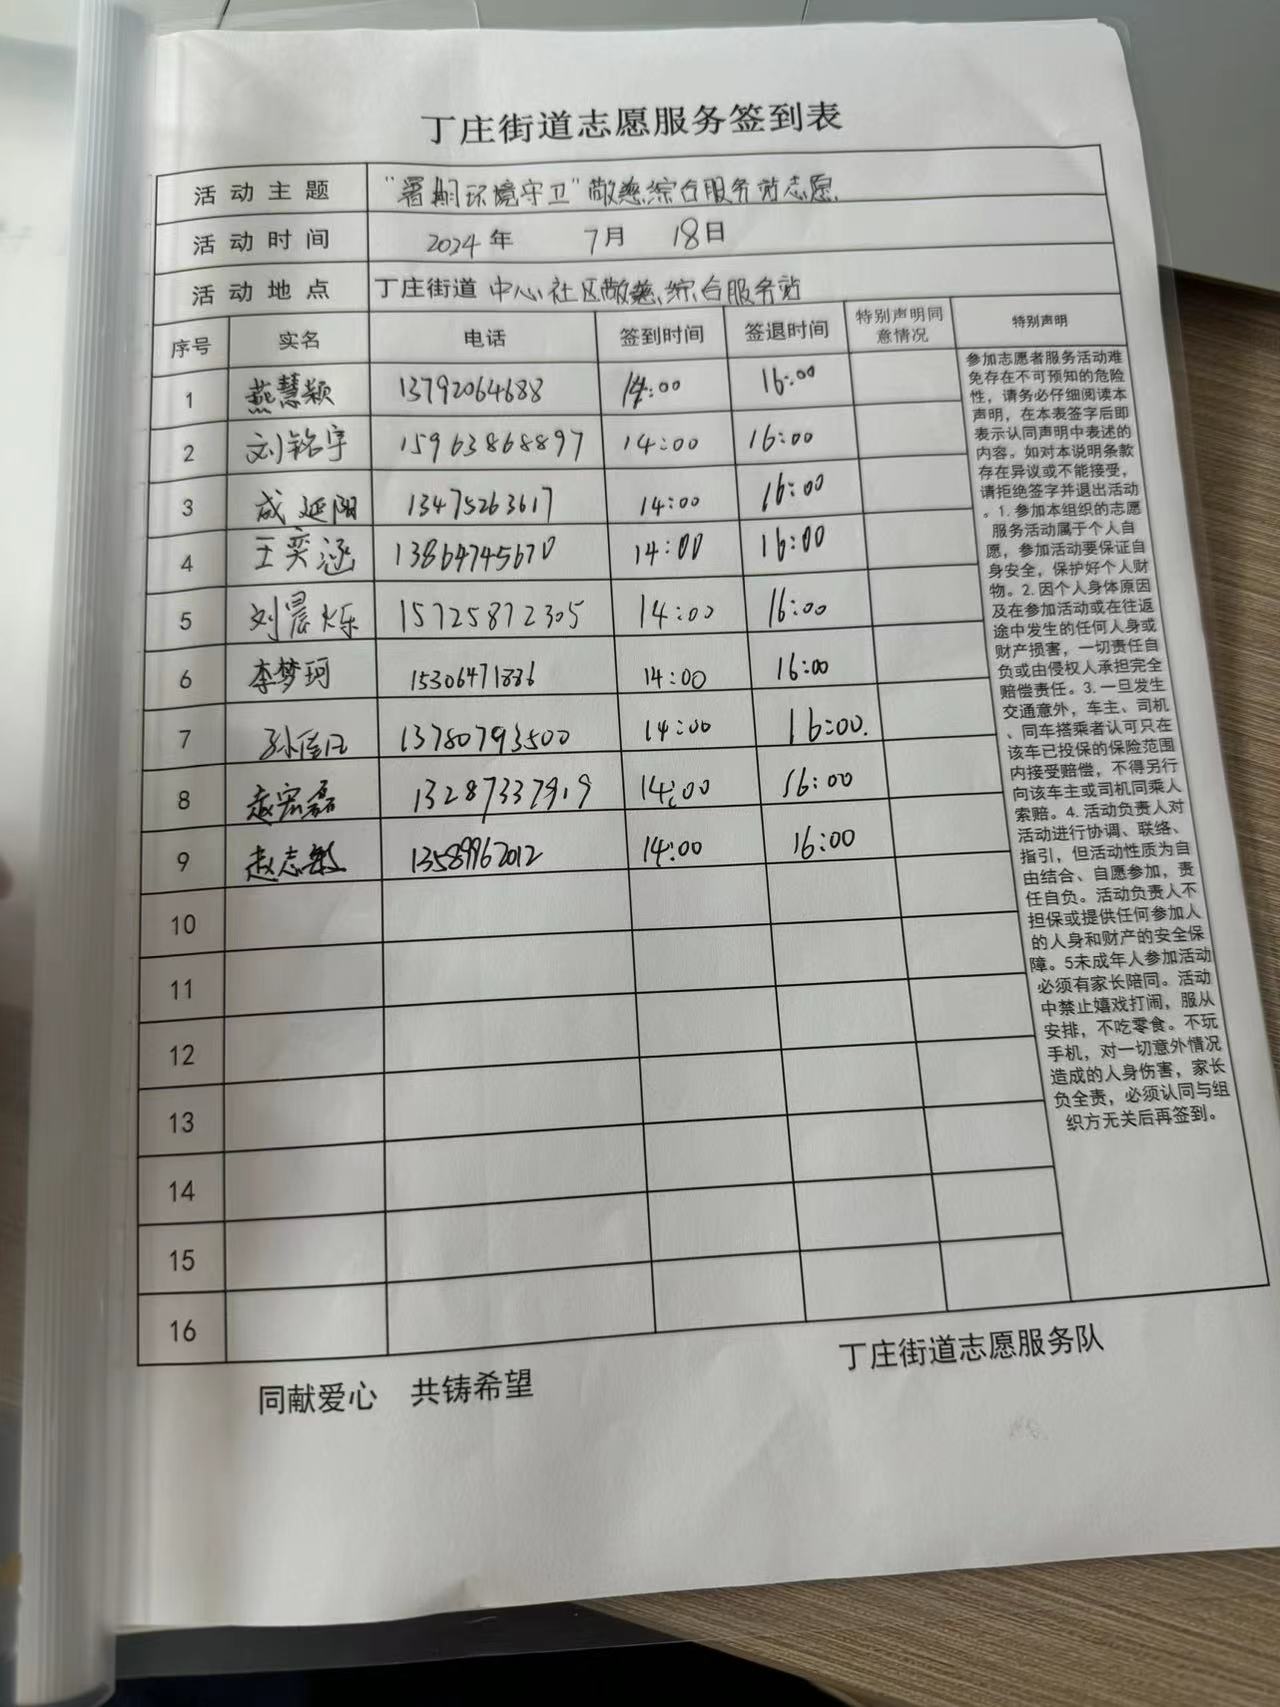 丁庄街道志愿服务签到表
活动主题 “暑期环境守卫”敬慈综合服务站志愿
活动时间 2024年 7月 18日
活动地点 丁庄街道 中心社区敬慈综合服务站
序号 实名 电话 签到时间 签退时间 特别声明同意情况 特别声明
1 燕慧颖 13792064688 14:00 16:00
2 刘铭宇 15963868897 14:00 16:00
3 成延阳 13475263617 14:00 16:00
4 王奕涵 13864745670 14:00 16:00
5 刘晨烁 15725872305 14:00 16:00
6 李梦珂 15306471886 14:00 16:00
7 13780793500 14:00 16:00.
8 赵宏磊 13287337919 14:00 16:00
9 赵志敏 13589962012 14:00 16:00
10
11
12
13
14
15
16
参加志愿者服务活动难
免存在不可预知的危险
性，请务必仔细阅读本
声明，在本表签字后即
表示认同声明中表述的
内容。如对本说明条款
存在异议或不能接受，
请拒绝签字并退出活动
。1.参加本组织的志愿
服务活动属于个人自
愿，参加活动要保证自
身安全，保护好个人财
物。2.因个人身体原因
及在参加活动或在往返
途中发生的任何人身或
财产损害，一切责任自
负或由侵权人承担完全
赔偿责任。3.一旦发生
交通意外，车主、司机
、同车搭乘者认可只在
该车已投保的保险范围
内接受赔偿，不得另行
向该车主或司机同乘人
索赔。4.活动负责人对
活动进行协调、联络、
指引，但活动性质为自
由结合、自愿参加，责
任自负。活动负责人不
担保或提供任何参加人
的人身和财产的安全保
障。5未成年人参加活动
必须有家长陪同。活动
中禁止嬉戏打闹，服从
安排，不吃零食。不玩
手机，对一切意外情况
造成的人身伤害，家长
负全责，必须认同与组
织方无关后再签到。
丁庄街道志愿服务队
同献爱心 共铸希望